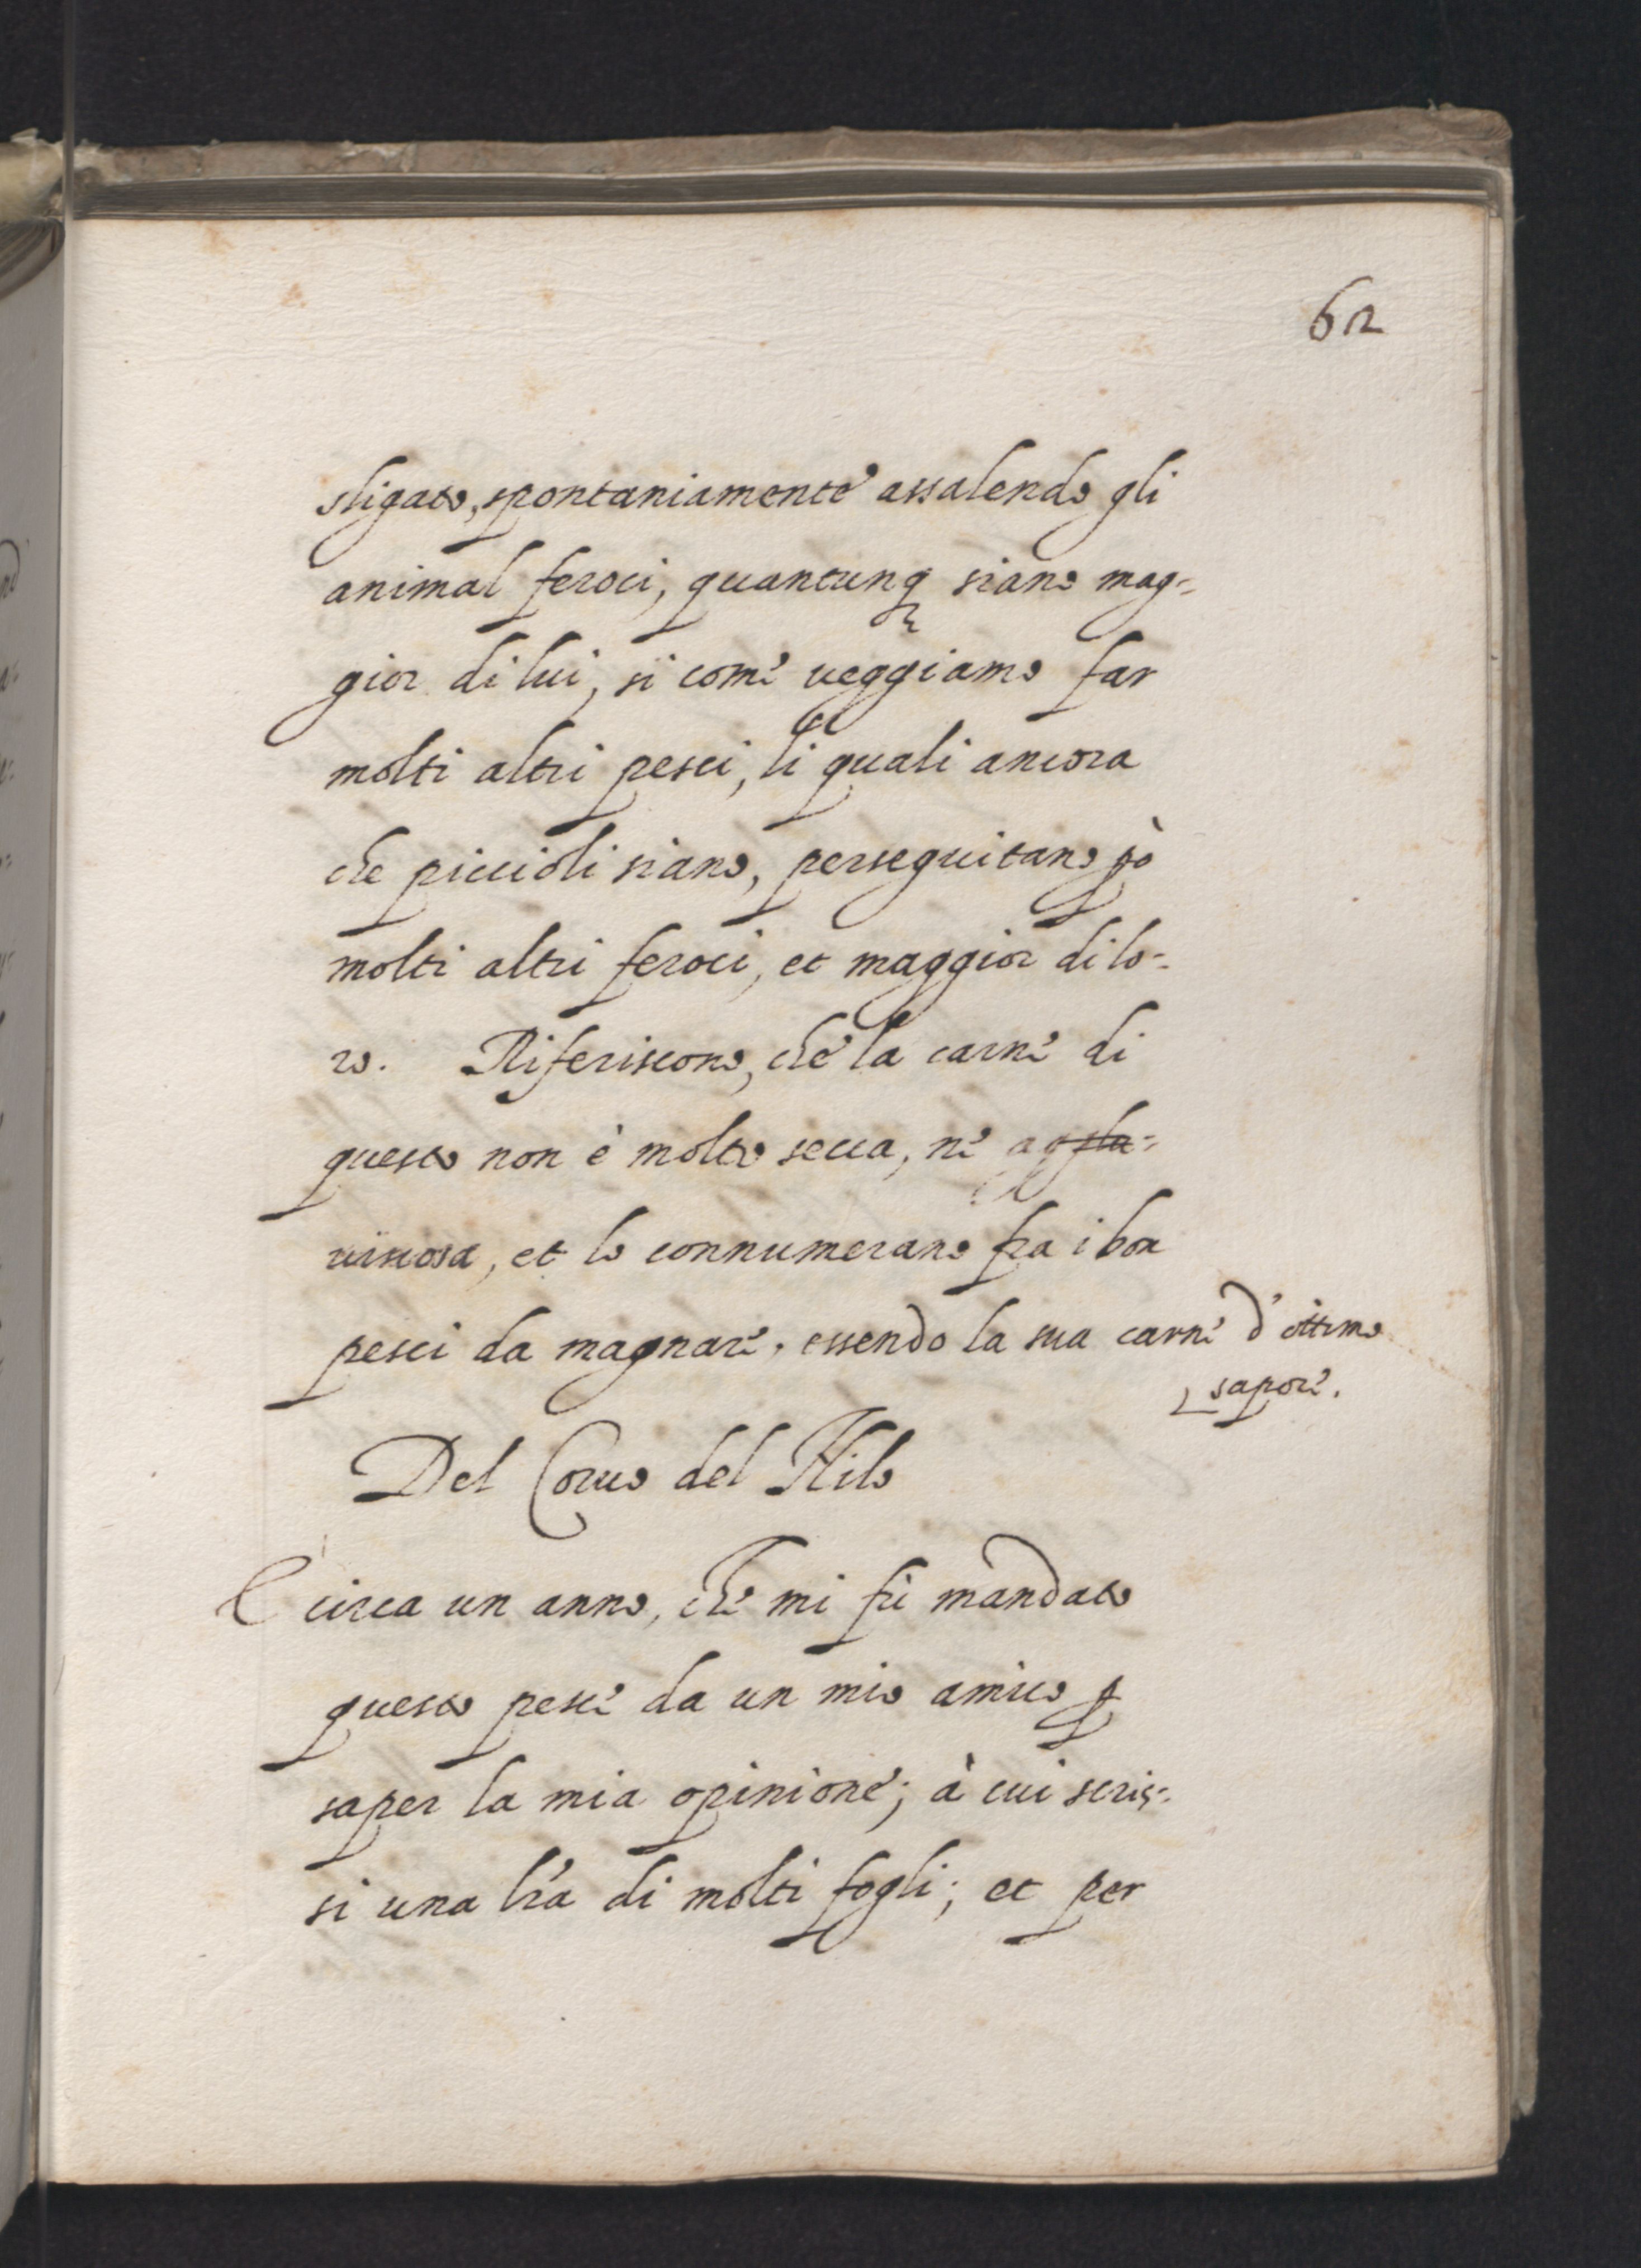 62
stigato, spontaniamente assalendo gli
animal feroci, quantunq siano mag-
gior di lui, si come ueggiamo far
molti altri pesci, li quali ancora
che piccioli siano, perseguitano pò
molti altri feroci, et maggior di lo-
ro. Riferiscono, che la carne di
questo non è molto secca, ne
uiscosa, et lo connumerano fra i bon
pesci da magnare. essendo la sua carne d'ottimo
sapore.
Del Coruo del Nilo
E circa un anno, che mi fù mandato
questo pesce da un mio amico ꝑ
saper la mia opinione; à cui scris-
si una lr̃a di molti fogli; et per